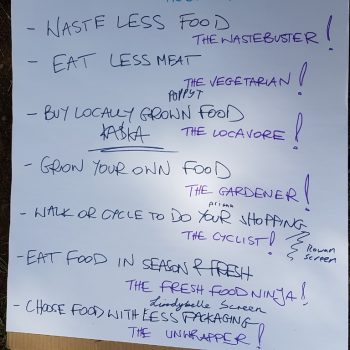 - WASTE LESS FOOD
THE WASTEBUSTER!
- EAT LESS MEAT
THE VEGETARIAN!
POPPYT
- BUY LOCALLY GROWN FOOD
KASKA THE LOCAVORE!
- GROW YOUR OWN FOOD
THE GARDENER!
- WALK OR CYCLE TO DO YOUR SHOPPING
THE CYCLIST! Rowan
screen
- EAT FOOD IN SEASON & FRESH
THE FRESH FOOD NINJA!
Screen
- CHOOSE FOOD WITH LESS PACKAGING
THE UNWRAPPER!